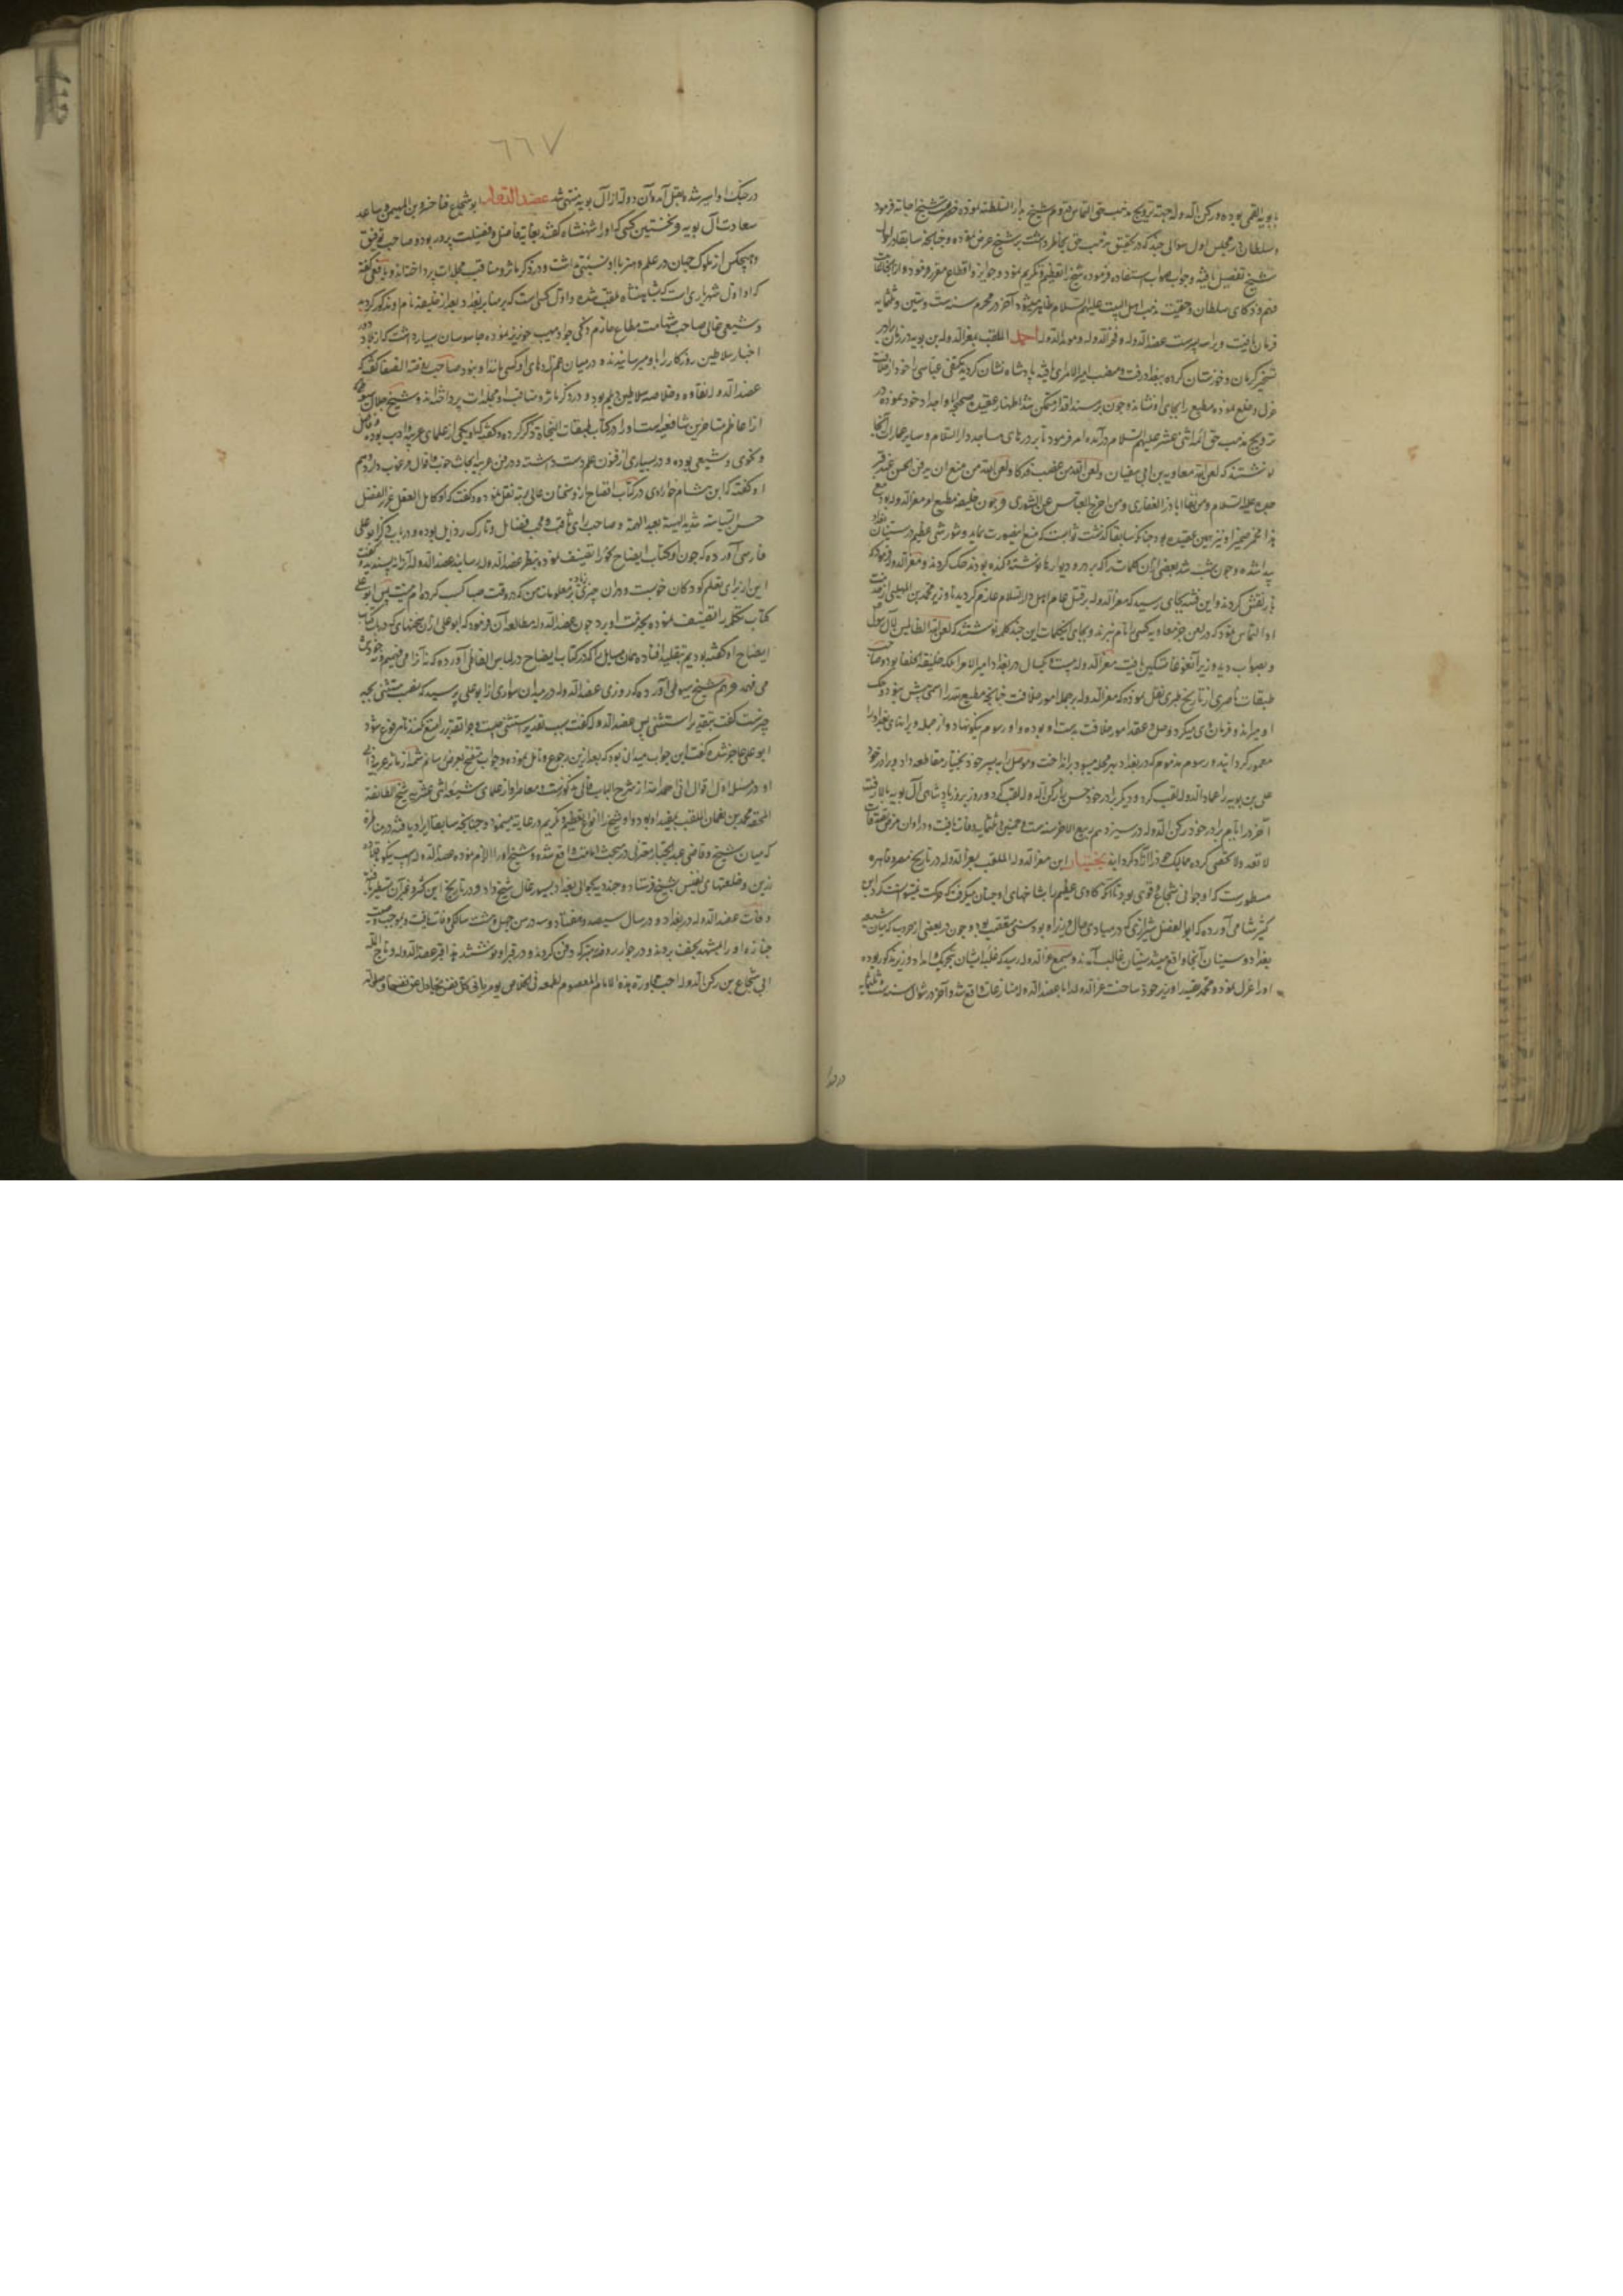 بابویه القمی بوده و رکن الدوله جهته ترویج مذهب حق التماس قدوم شیخ بدار السلطنه نموده حضرت شیخ اجابه فرمود
و سلطان در مجلس اول سوالی چند که در تحقیق مذهب حق بخاطر داشت بر شیخ عرض نموده و چنانچه سابقا در احوال
شیخ تفصیل یافته و جواب صواب استفاده فرموده شیخ را تعظیم و تکریم نمود و جوایز و اقطاع مقرر فرمود و از آنجا غایت
فهم و ذکای سلطان و حقیت مذهب اهل البیت علیهم السلام ظاهر میشود آخر در محرم سنه ست و ستین و ثلثمایه
فرمان یافت و پسر عضد الدوله و فخر الدوله و موید الدوله احمد الملقب بمعز الدوله بن بویه در زمان برادر
تسخیر کرمان و خوزستان کرده ببغداد رفت و منصب امیر الامرای یافته پادشاه نشان کردید مکتفی عباسی را خود از خلافت
عزل و خلع نموده مطیع را بجای او نشانده و چون بر مسند اقتدار متمکن شد اظهار عقیدت صحیحه آبا و اجداد خود نموده در
ترویج مذهب حق ائمه اثنی عشر علیهم السلام در آمده امر فرمود تا بر درهای مساجد دار السلام و سایر عمارات آنجا
نوشتند که لعن الله معاویه بن ابی سفیان و لعن الله من غضب فدکا و لعن الله من منع ان یدفن الحسن عند قبر
جده علیه السلام و من نفا ابا ذر الغفاری و من اخرج العباس عن الشوری و چون خلیفه مطیع او معز الدوله بود منع
پیدا شده و چون شب شد بعضی از آن کلمات را که بر در و دیوارها نوشته کنده بودند حک کردند و معز الدوله فرمود که
باز نقش کردند و این فتنه بجای رسید که معز الدوله بر قتل عام اهل دار السلام عازم کردید تا وزیر محمد بن المهلبی از خدمت
او التماس نمود که در لعن جز معاویه کسی را نام نبرند و بجای آن کلمات این چند کلمه نوشتند که لعن الله الظالمین لآل رسول
و بصواب دید وزیر آن غوغا تسکین یافت معز الدوله بیست و یکسال در بغداد امیر الامرا بلکه خلیفة الخلفا بود و صاحب
طبقات ناصری از تاریخ طبری نقل نموده که معز الدوله بر جمله امور خلافت چنانچه مطیع بقدر اسمی بیش نبود و حک
او میراند و فرمان ی میکرد و حل و عقد امور خلافت بدست او بوده و او رسوم نیکو نهاد و از جمله ویرانهای بغداد را
معمور کردانیده و رسوم مذموم که در بغداد بهر محله میبود برانداخت و موصل را به پسر خود بختیار مقاطعه داد و برادر خود
علی بن بویه را عماد الدوله لقب کرد و دیکر برادر خود حسن را رکن الدوله لقب کرد و روز بروز پادشاهی آل بویه بالا رفت
آخر در ایام برادر خود رکن الدوله در سیزدهم ربیع الاخر سنه ست و خمسین و ثلثمایه وفات یافت و در اوان مرض صدقات
لا تعد و لا تحصی کرده ممالیک خود را آزاد کردانید بختیار ابن معز الدوله الملقب بعز الدوله در تاریخ مصر و قاهره
مسطورست که او جوانی شجاع و قوی بود تا آنکه کاوی عظیم را بشاخهای او چنان میکرفت که حرکت نمیتوانست کرد ابن
کثیر شامی آورده که ابو الفضل شیرازی که در مبادی حال وزیر او بود سنی متعصب بود و چون در بعضی از حروب که میان شیعه
بغداد و سنیان آنجا واقع میشد سنیان غالب آمدند و بسمع عز الدوله رسید که غلبه ایشان بتحریک و امداد وزیر مذکور بوده
او را عزل نموده و محمد بقیه را وزیر خود ساخت عز الدوله را با عضد الدوله منازعات واقع شد و آخر در شوال سنه ثلثمایه
در جنک
٦٦٧
در جنک او اسیر شده بقتل آمد و آن دولت از آل بویه منتهی شد عضد الدوله ابو شجاع فناخسرو بن المیمن و ساعد
سعادت آل بویه و نخستین کسی که او را شهنشاه کفتند بغایة فاضل و فضیلت پرور بوده و صاحب توفیق
و هیچکس از ملوک جهان در علم و هنر با او نسبتی نداشت و در ذکر مآثر و مناقب مجلدات پرداخته‌اند و یافعی کفته
که او اول شهریاری است که بشاهنشاه ملقب شده و اول کسی است که بر منابر بغداد بعد از خلیفه نام او مذکور کردید
و شیعی غالی صاحب شهامت مطاع حازم ذکی جواد مهیب خونریز بوده جاسوسان بسیار داشت که از بلاد دور
اخبار سلاطین روزکار را باو میرسانیدند و در میان عم‌زادهای او کسی مانند او نبود صاحب روضة الصفا کفته که
عضد الدوله نقاوه و خلاصه سلاطین دیلم بود و در ذکر مآثر و مناقب او مجلدات پرداخته‌اند و شیخ جلال سیوطی
از اعاظم متاخرین شافعیه است او را در کتاب طبقات النحاة ذکر کرده و کفته که او یکی از علمای عربیه و ادب بود و فاضل
و نحوی و شیعی بوده و در بسیاری از فنون علم دست داشته و در فن عربیه ابحاث خوب و اقوال مرغوب دارد و هم
او کفته که ابن هشام خضراوی در کتاب افصاح از و سخنان عالی مرتبه نقل نموده و کفت که او کامل العقل غزیر الفضل
حسن السیاسه شدید الهیبة بعید الهمة و صاحب رای ثاقب و محب فضایل و تارک رذایل بوده و در باب ذکر ابو علی
فارسی آورده که چون او کتاب ایضاح نحو را تصنیف نموده بنظر عضد الدوله رسانید عضد الدوله آنرا نپسندید و کفت
این از برای تعلیم کودکان خوبست و در آن چیزی زیاده بر معلومات من که در وقت صبا کسب کرده‌ام نیست پس ابو علی
کتاب تکمله را تصنیف نموده بخدمت او برد چون عضد الدوله مطالعه آن فرمود که ابو علی از آن سخنهای که در باب کتاب
ایضاح او کفته بودیم
می فهمد و هم شیخ سیوطی آورده که روزی عضد الدوله در میدان سواری از ابو علی پرسید که نصب مستثنی بچه
چیزست کفت بتقدیر استثنی پس عضد الدوله کفت بسبب تقدیر استثنی چیست و چرا تقدیر امتنع نکنند تا مرفوع شود
ابو علی عاجز شده کفت این جواب میدانی بود که بعد ازین رجوع و تامل نموده و جواب منقح بعرض رسانم
الحقه محمد بن نعمان الملقب بمفید او بود و او شیخ را انواع تعظیم و تکریم و رعایت مینمود و چنانچه سابقا ایراد یافته در مناظره
که میان شیخ و قاضی عبد الجبار معتزلی در بحث امامت واقع شده و شیخ او را الزام نموده عضد الدوله اسب نیکو
زرین و خلعتهای نفیس بشیخ فرستاد و چند دیه حوالی بغداد بسیورغال شیخ داد و در تاریخ ابن کثیر و غیر آن مسطور
وفات عضد الدوله در بغداد و در سال سیصد و هفتاد و سه در سن چهل و هشت سالکی وفات یافت و بموجب وصیت
جنازه او را بمشهد نجف بردند و در جوار روضه متبرکه دفن کردند و در قبر او نوشتند هذا قبر عضد الدوله و تاج المله
ابی شجاع بن رکن الدوله احب مجاورة هذه الامام المعصوم لطمعه فی الخلاص یوم یاتی کل نفس تجادل عن نفسها و صلواته